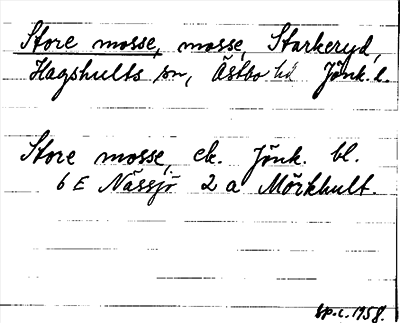 Store mosse, mosse, Starkeryd,
Hagshults sn, Östbo hd Jönk. l.
Store mosse, ek. Jönk. bl.
6 E Nässjö 2 a Mörkhult.
sp.c. 1958.